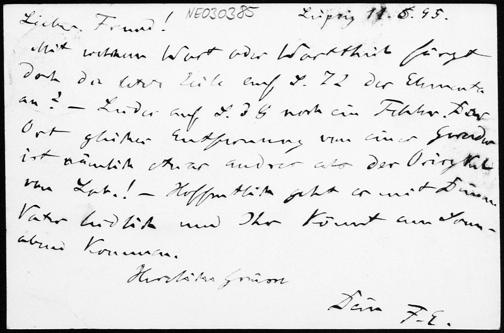 Lieber Freund! NE030385 Leipzig 11.5.95.
Mit welchem Wort oder Worttheil fängt
doch die letzte Zeile auf S. 72 der Elemente
an? – Leider auf S. 38 noch ein Fehler. Der
Ort gleicher Entfernung von einer Geraden
ist nämlich etwas andres als der
von Lob.! – Hoffentlich geht es mit Deinem
Vater leidlich und Ihr könnt am Sonn-
abend kommen.
Herzliche Grüsse
Dein F. E.